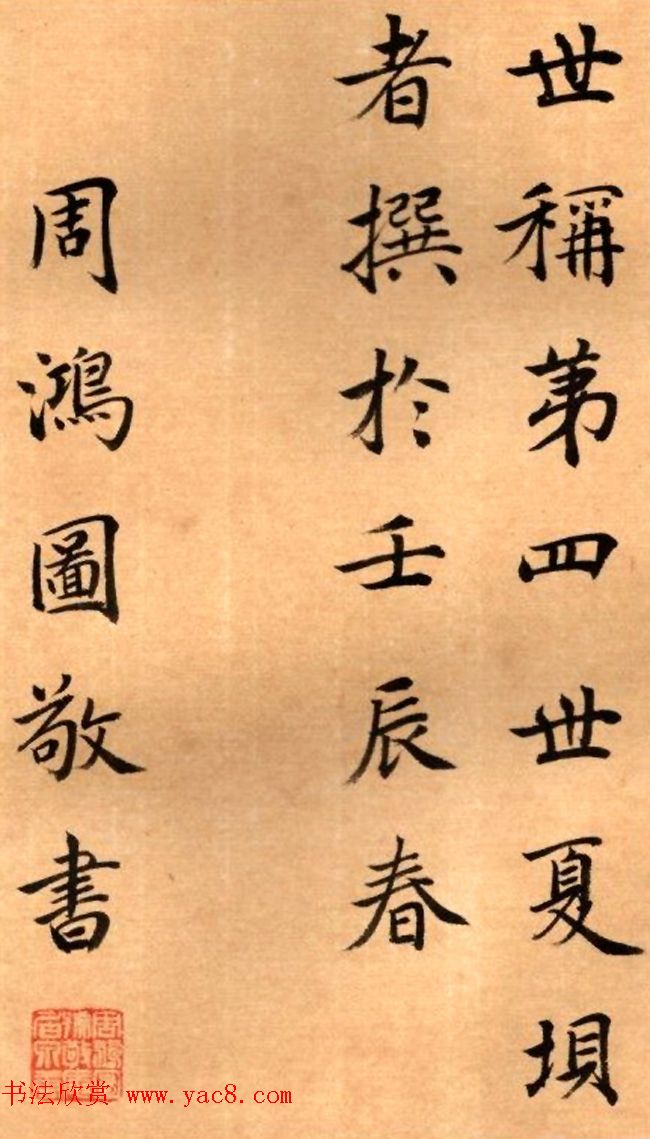 世稱第四世夏垻
者撰於壬辰春
周鴻圖敬書
书法欣赏 www.yac8.com